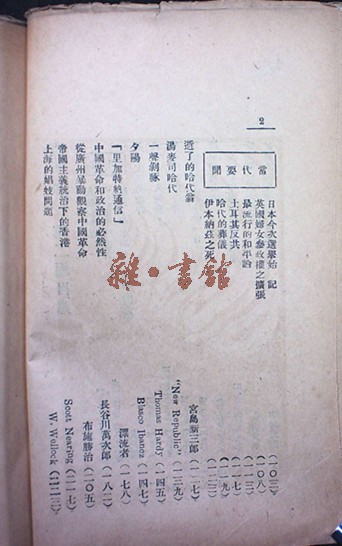 2
當代要聞
日本今次選舉始記 (一〇三)
英國婦女參政權之擴張 (一〇八)
最流行的和平論 (一一三)
土耳其反共 (一一七)
哈代的葬儀
伊本納茲之死
逝了的哈代翁 宮島新三郎 (一二七)
湯麥司哈代 "New Republic" (一三九)
一聲剝啄 Thomas Hardy (一四五)
夕陽 Blasco Ibanez (一四七)
「里加特納通信」 漂流者 (一七八)
中國革命和政治的必然性 長谷川萬次郎 (一八二)
從廣州暴動觀察中國革命 布施勝治 (二〇五)
帝國主義統治下的香港 Scott Nearing (二一七)
上海的娼妓問題 W. Wellock (二二三)
雜·書館